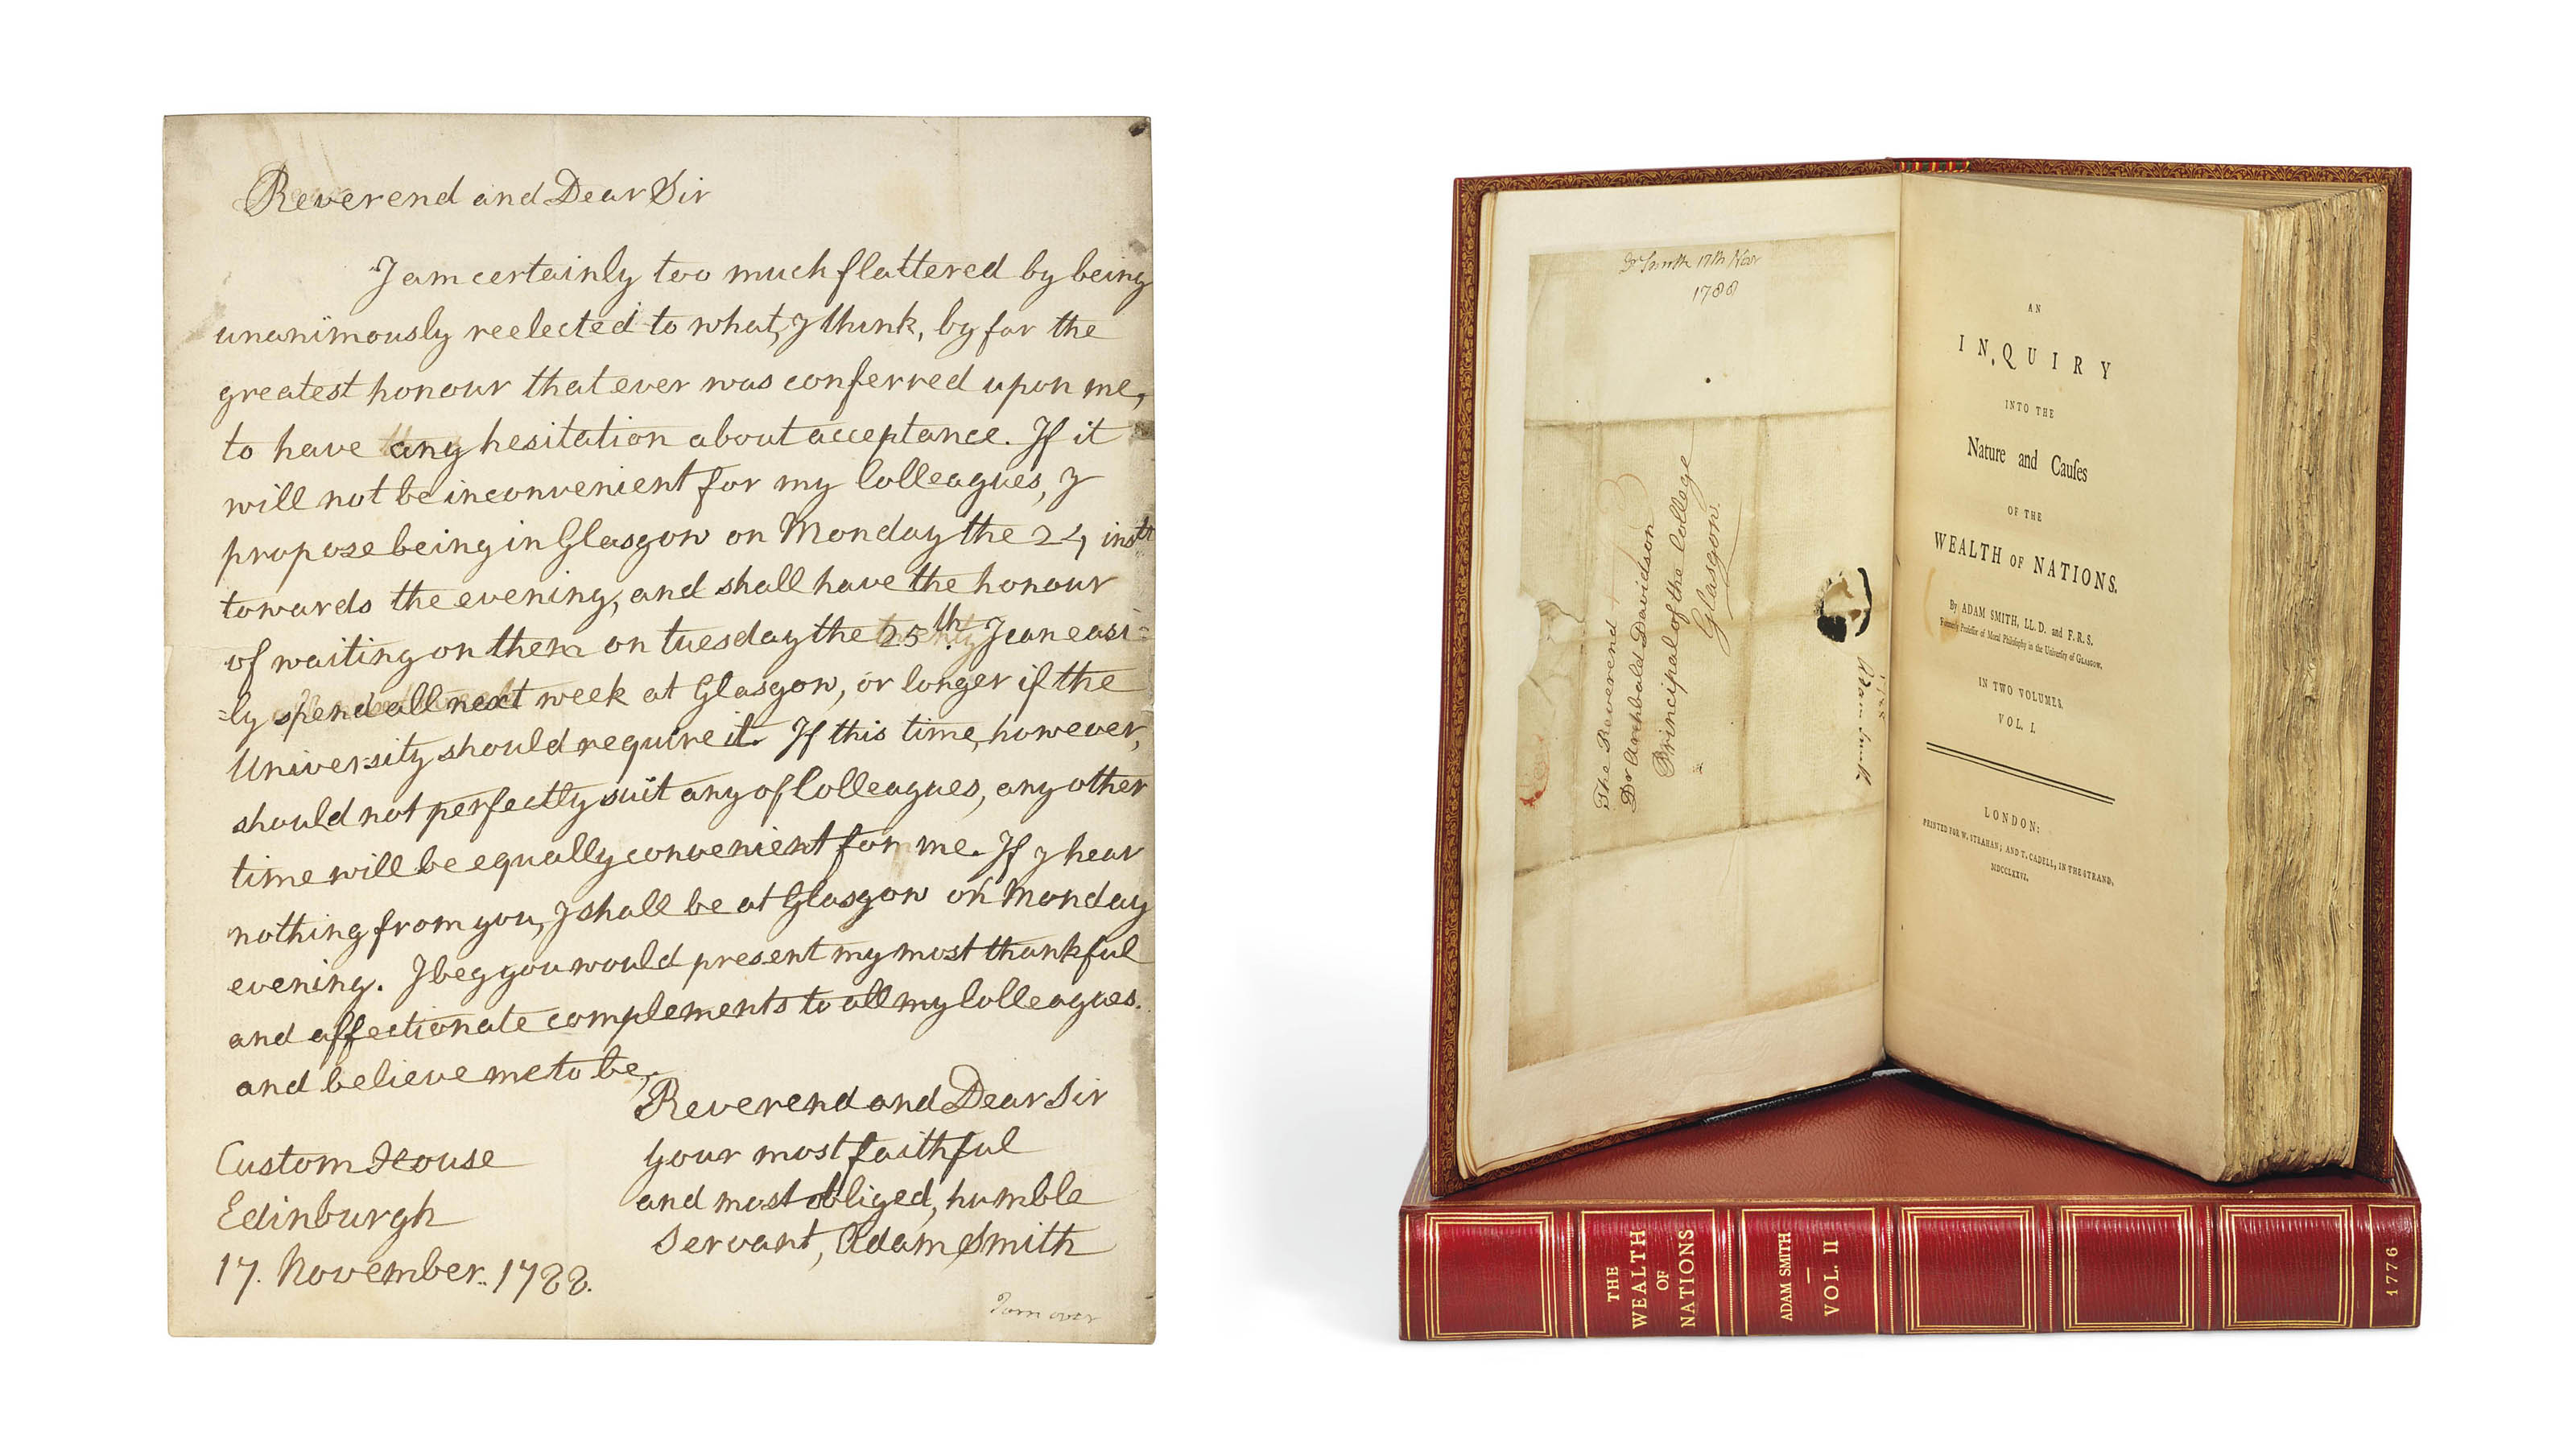 Reverend and Dear Sir
I am certainly too much flattered by being
unanimously reelected to what, I think, by far the
greatest honour that ever was conferred upon me,
to have any hesitation about acceptance. If it
will not be inconvenient for my Colleagues, I
propose being in Glasgow on Monday the 24 inst
towards the evening, and shall have the honour
of waiting on them on tuesday the 25th. I can easi=
=ly spend all next week at Glasgow, or longer if the
University should require it. If this time, however,
should not perfectly suit any of Colleagues, any other
time will be equally convenient for me. If I hear
nothing from you, I shall be at Glasgow on Monday
evening. I beg you would present my most thankful
and affectionate complements to all my Colleagues.
and believe me to be,
Reverend and Dear Sir
your most faithful
and most obliged, humble
Servant, Adam Smith
Custom House
Edinburgh
17. November. 1788.
Turn over
Dr Smith 17th Novr
1788
The Reverend
Dr Archbald Davidson
Principal of the College
Glasgow
1788
Adam Smith
AN
INQUIRY
INTO THE
Nature and Cauſes
OF THE
WEALTH OF NATIONS.
By ADAM SMITH, LL.D. and F.R.S.
Formerly Profeſſor of Moral Philoſophy in the Univerſity of GLASGOW.
IN TWO VOLUMES.
VOL. I.
LONDON:
PRINTED FOR W. STRAHAN; AND T. CADELL, IN THE STRAND.
MDCCLXXVI.
THE
WEALTH
OF
NATIONS
ADAM SMITH
VOL. II
1776